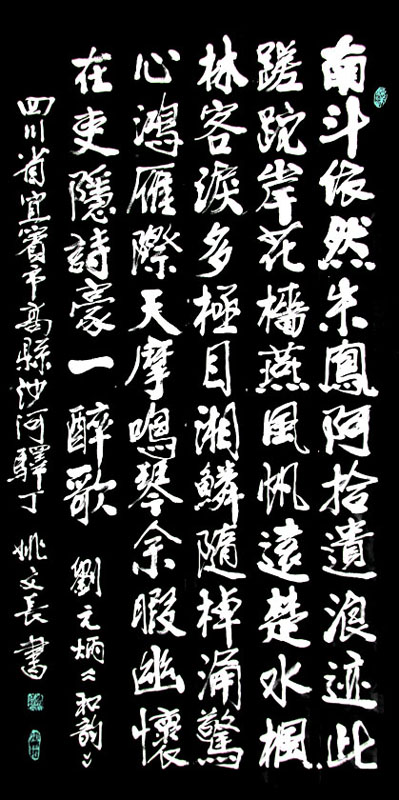 南斗依然朱鳳阿拾遺浪迹此
蹉跎岸花檣燕風帆遠楚水楓
林客淚多極目湘鱗隨棹涌驚
心鴻雁際天摩鳴琴余暇幽懷
在吏隱詩豪一醉歌 劉元炳《和韵》
四川省宜賓市高縣沙河驛丁 姚文長書